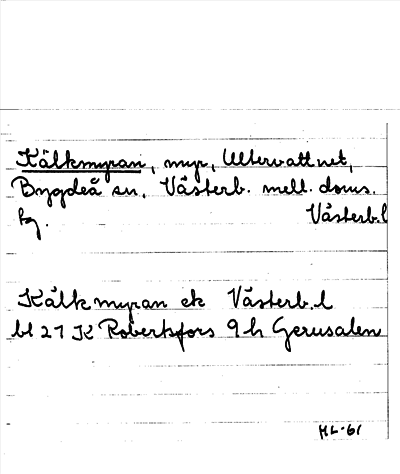 Kälkmyran, myr, Ultervattnet,
Bygdeå sn, Västerb. mell. doms.
hg. Västerb.l
Kälkmyran ek Västerb.l
bl 27 K Robertsfors 9 h Gerusalen
HL-61